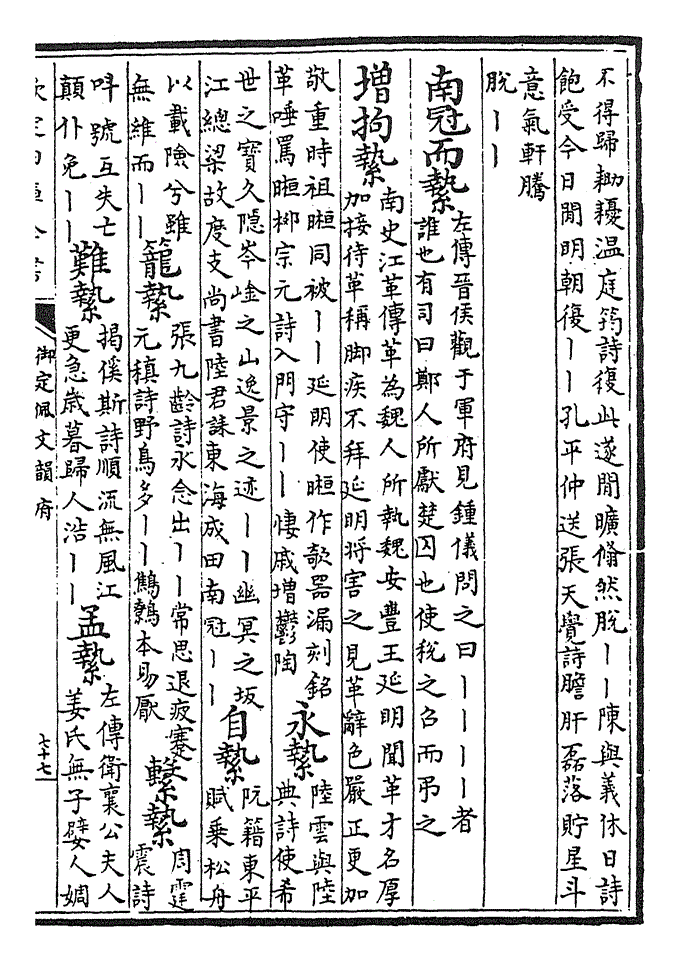 不得歸耡耰温庭筠詩復此遂閒曠翛然脫丨丨陳與義休日詩
飽受今日閒明朝復丨丨孔平仲送張天覺詩膽肝磊落貯星斗
意氣軒騰
脫丨丨
南冠而縶
左傳晉侯觀于軍府見鍾儀問之曰丨丨丨丨者
誰也有司曰鄭人所獻楚囚也使稅之召而弔之
增拘縶
南史江革傳革為魏人所執魏安豐王延明聞革才名厚
加接待革稱脚疾不拜延明将害之見革辭色嚴正更加
敬重時祖暅同被丨丨延明使暅作欹器漏刻銘
革唾罵暅栁宗元詩入門守丨丨悽戚增鬱陶
永縶
陸雲與陸
典詩使希
世之寶久隱岑崯之山逸景之迹丨丨幽冥之坂
江總梁故度支尚書陸君誄東海成田南冠丨丨
自縶
阮籍東平
賦乗松舟
以載險兮雖
無維而丨丨
籠縶
張九齡詩永念出丨丨常思退疲蹇
元稹詩野鳥多丨丨鷦鷯本易厭
繫縶
周霆
震詩
呌號互失亡
顛仆免丨丨
難縶
揭傒斯詩順流無風江
更急歲暮歸人浩丨丨
孟縶
左傳衛襄公夫人
姜氏無子嬖人婤
欽定四庫全書
御定佩文韻府
七十七